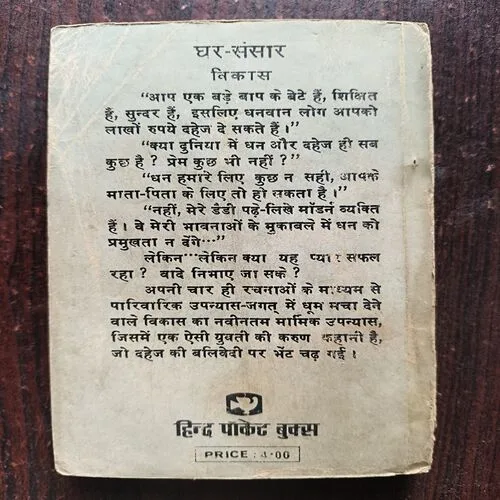 घर-संसार
विकास
“आप एक बड़े बाप के बेटे हैं, शिक्षित
हैं, सुन्दर हैं, इसलिए धनवान लोग आपको
लाखों रुपये दहेज दे सकते हैं।”
“क्या दुनिया में धन और दहेज ही सब
कुछ है ? प्रेम कुछ भी नहीं ?”
“धन हमारे लिए कुछ न सही, आपके
माता-पिता के लिए तो हो सकता है।”
“नहीं, मेरे डैडी पढ़े-लिखे मॉडर्न व्यक्ति
हैं। वे मेरी भावनाओं के मुकाबले में धन को
प्रमुखता न देंगे···”
लेकिन···लेकिन क्या यह प्यार सफल
रहा ? वादे निभाए जा सके ?
अपनी चार ही रचनाओं के माध्यम से
पारिवारिक उपन्यास-जगत् में धूम मचा देने
वाले विकास का नवीनतम मार्मिक उपन्यास,
जिसमें एक ऐसी युवती की करुण कहानी है,
जो दहेज की बलिवेदी पर भेंट चढ़ गई।
हिन्द पॉकेट बुक्स
PRICE : 4·00